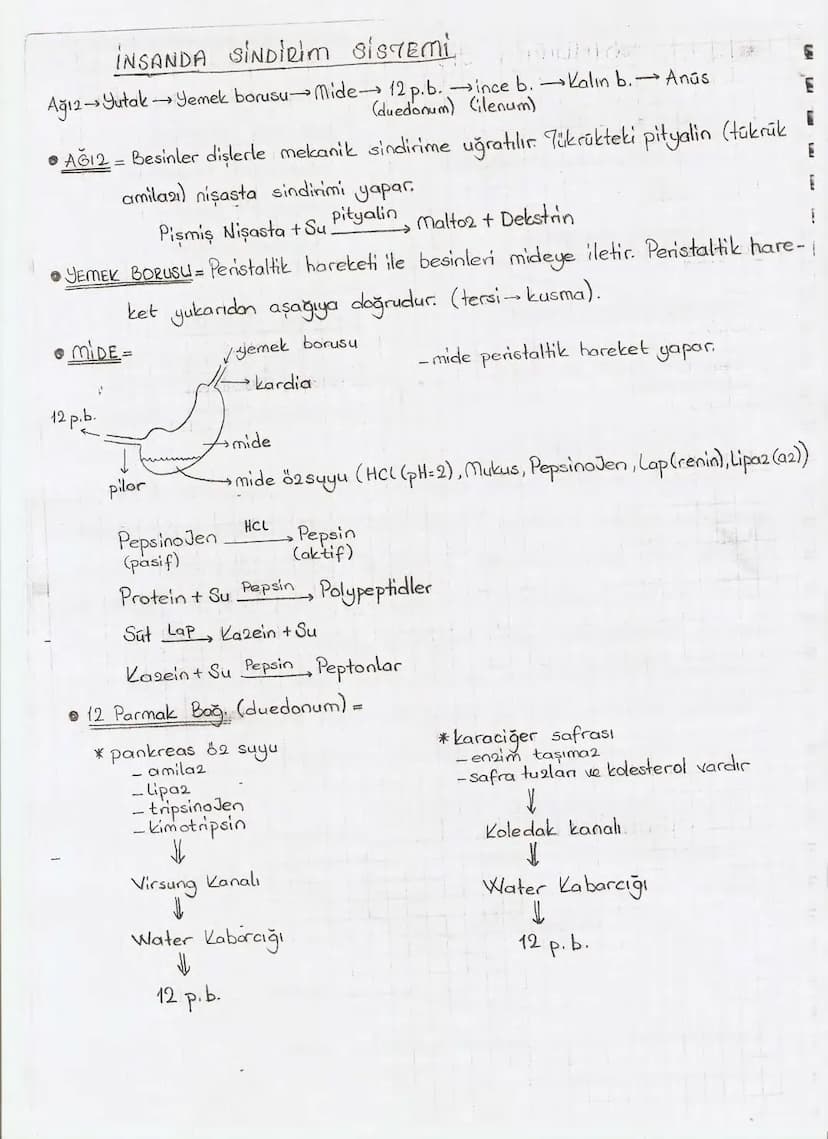 İNSANDA SİNDİRİM SİSTEMİ
Ağız→Yutak→Yemek borusu→Mide→ 12 p.b. →ince b. →Kalın b.→ Anüs
(duedonum) (ilenum)
• AĞIZ = Besinler dişlerle mekanik sindirime uğratılır. Tükrükteki pityalin (tükrük
amilazı) nişasta sindirimi yapar.
Pişmiş Nişasta + Su pityalin → Maltoz + Dekstrin
• YEMEK BORUSU = Peristaltik hareketi ile besinleri mideye iletir. Peristaltik hare-
ket yukarıdan aşağıya doğrudur. (tersi→kusma).
• MİDE =
yemek borusu
- mide peristaltik hareket yapar.
→kardia
12 p.b.
→mide
pilor
→mide özsuyu (HCl (pH=2), Mukus, PepsinoJen, Lap(renin), Lipaz(az))
PepsinoJen HCl → Pepsin
(pasif) (aktif)
Protein + Su Pepsin → Polypeptidler
Süt Lap → Kazein + Su
Kazein + Su Pepsin → Peptonlar
• 12 Parmak Bağ. (duedonum) =
* pankreas öz suyu
- amilaz
- lipaz
- tripsinoJen
- kimotripsin
⇓
Virsung Kanalı
⇓
Water Kabarcığı
⇓
12 p.b.
* karaciğer safrası
- enzim taşımaz
- safra tuzları ve kolesterol vardır
⇓
Koledak kanalı
⇓
Water Kabarcığı
⇓
12 p.b.